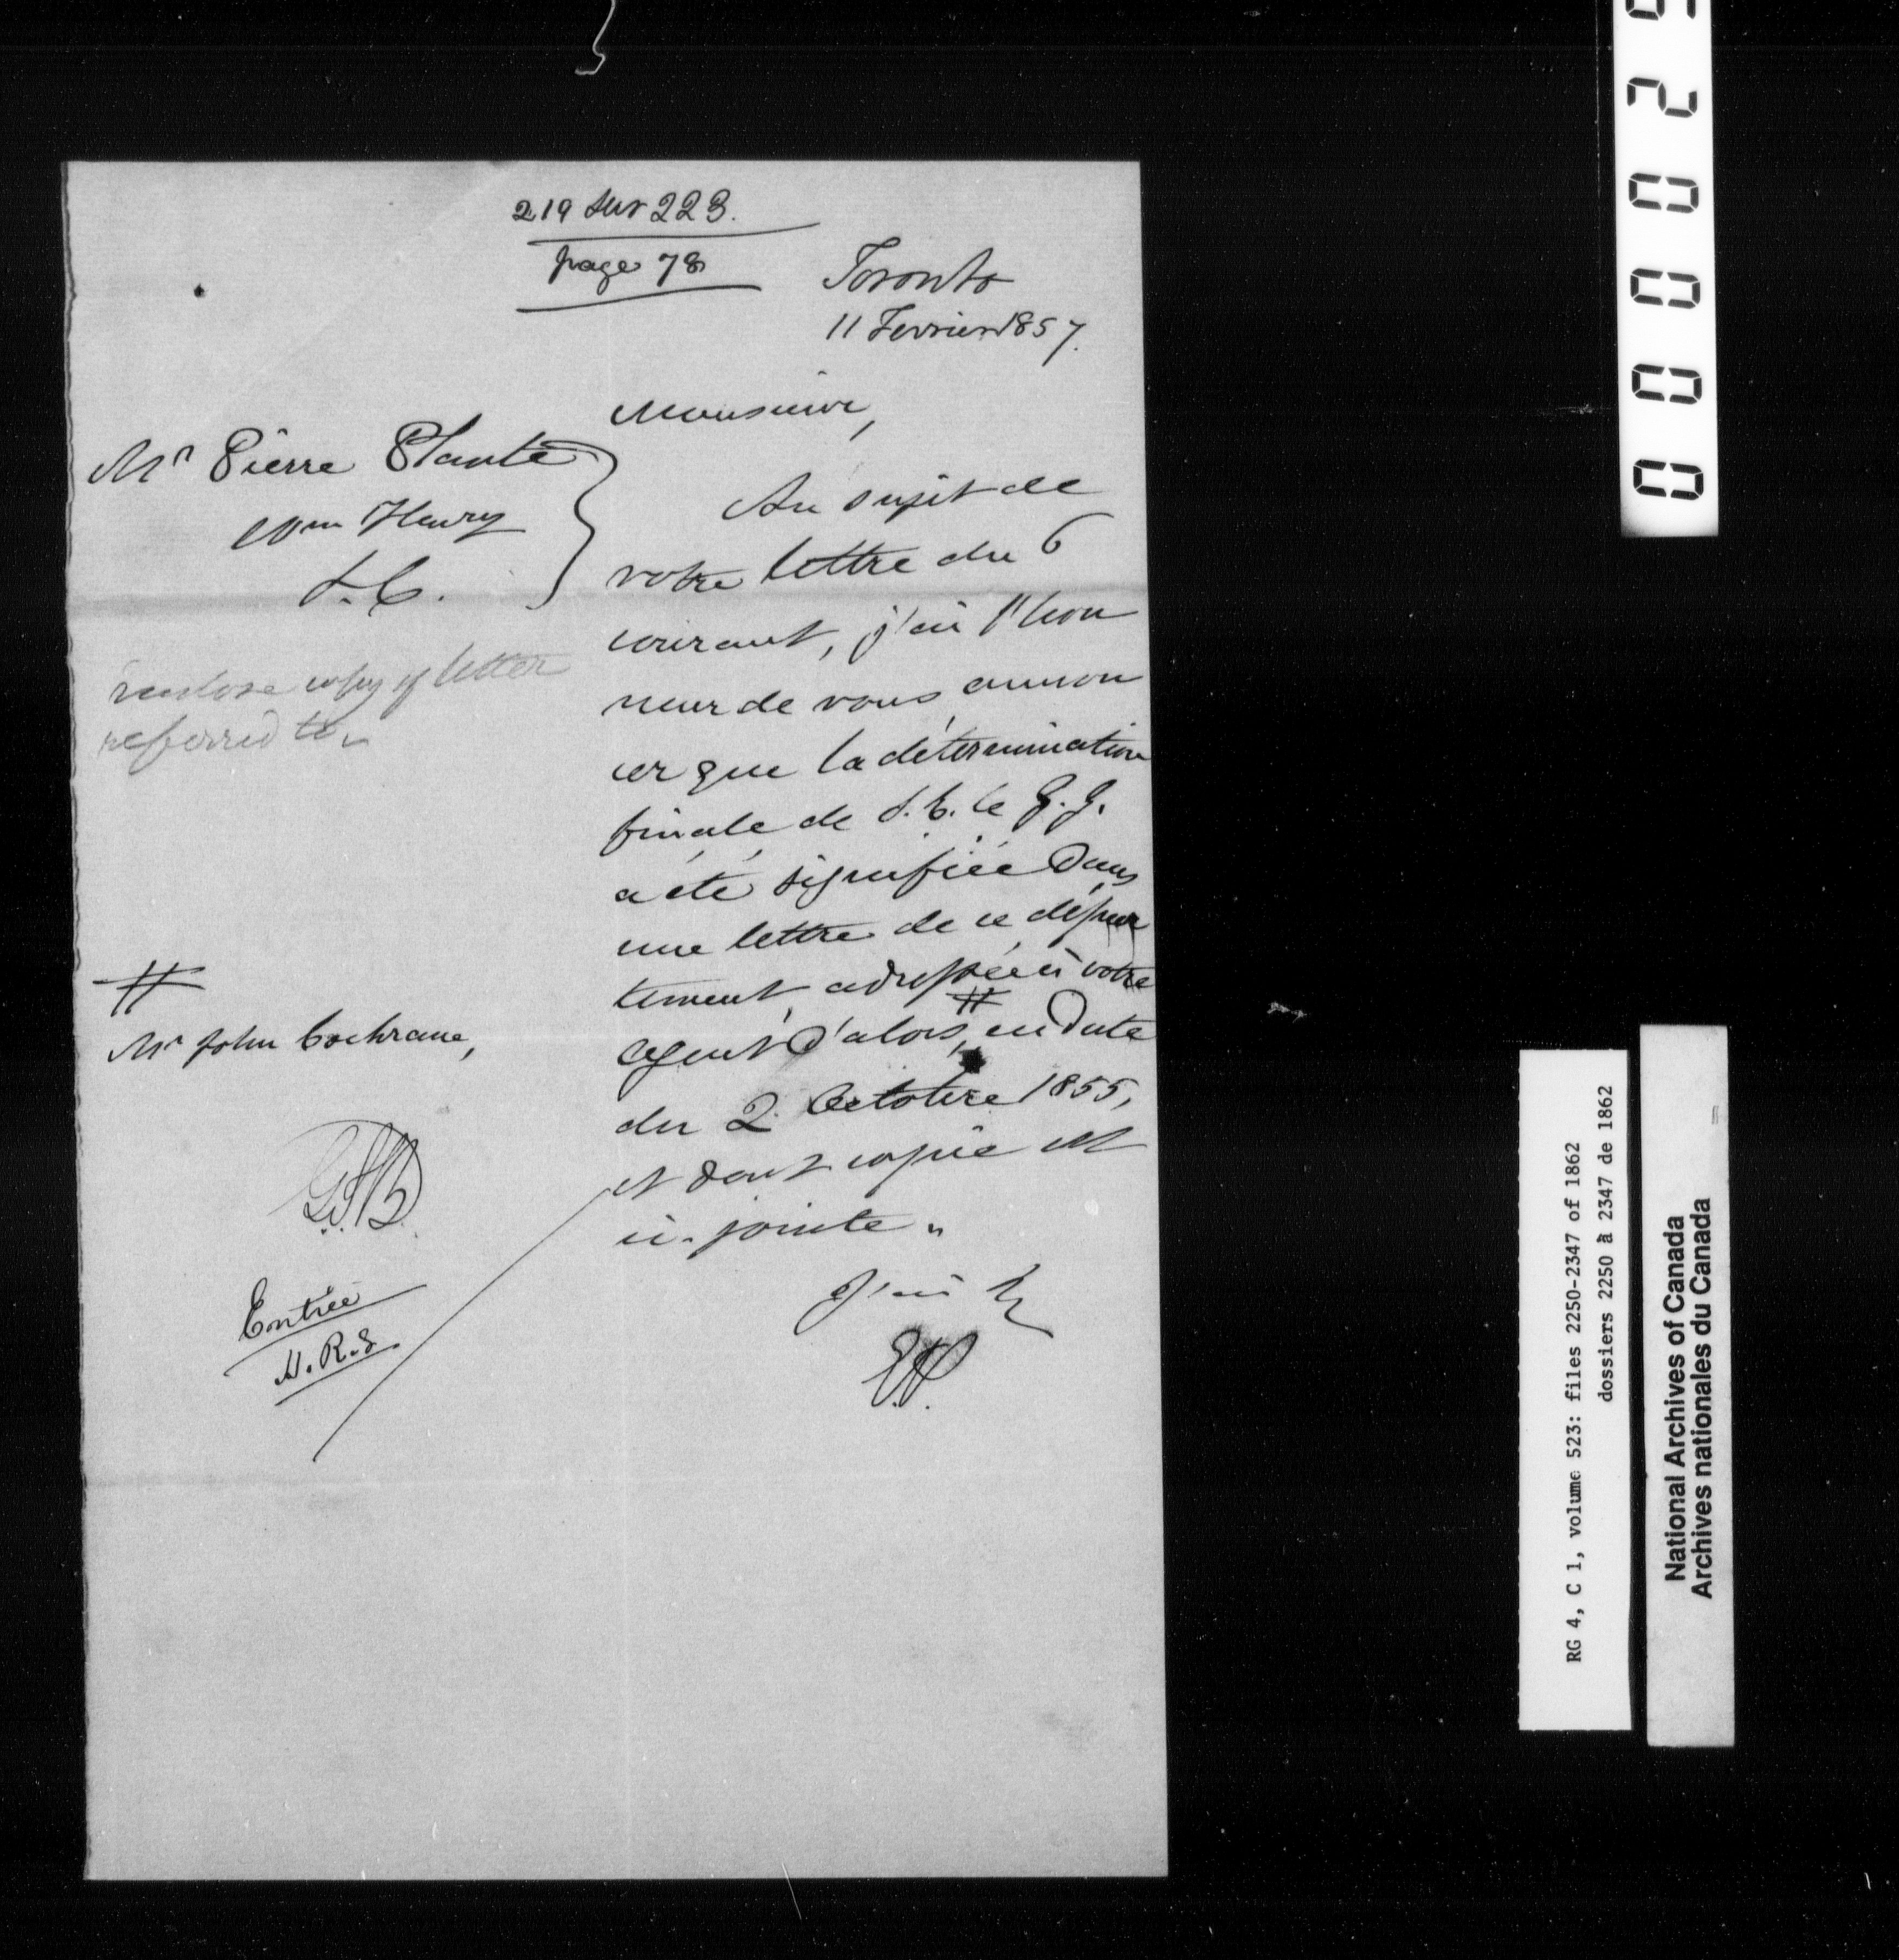 219 sur 223.
page 78
Toronto
11 Fevrier 1857.
Monsieur,
Mr Pierre Plante
Wm Henry
L.C.
Au sujet de
votre lettre du 6
courant, j'ai l'hon
neur de vous annon
cer que la détermination
finale de S.E. le G.G.
a été signifiée dans
une lettre de ce dépar
tement adressée à votre
agent d'alors, # en date
du 2 Octobre 1855,
et dont copie est
ci-jointe.
J'ai
E.P.
enclose copy of letter
referred to
#
Mr John Cochrane,
Entrée
H.R.S
0000 2 9
RG 4, C 1, volume 523: files 2250-2347 of 1862
dossiers 2250 à 2347 de 1862
National Archives of Canada
Archives nationales du Canada